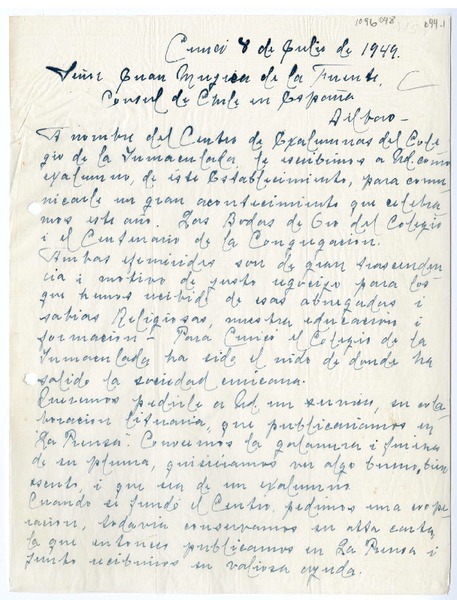 1096048 d94-1
Curicó 8 de Julio de 1949.
Señor Juan Mugica de la Fuente,
Consul de Chile en España
Bilbao -
A nombre del Centro de Exalumnas del Cole
gio de la Inmaculada, le escribimos a Ud. como
exalumno, de este Establecimiento, para comu
nicarle un gran acontecimiento que celebra
mos este año. Las Bodas de Oro del Colegio
i el Centenario de la Congregación.
Ambas efemérides son de gran trascenden
cia i motivo de justo regocijo para los
que hemos recibido de esas abnegadas i
sabias Religiosas, nuestra educación i
formación - Para Curicó el Colegio de la
Inmaculada ha sido el nido de donde ha
salido la sociedad curicana.
Queremos pedirle a Ud. un servicio, su cola
boración literaria, que publicaríamos en
"La Prensa". Conocemos la galanura i finura
de su pluma, quisiéramos ver algo bueno, bien
escrito, i que sea de un exalumno
Cuando se fundó el Centro pedimos una coope
ración, todavía conservamos su atta carta,
la que entonces publicamos en La Prensa i
junto recibimos su valiosa ayuda.